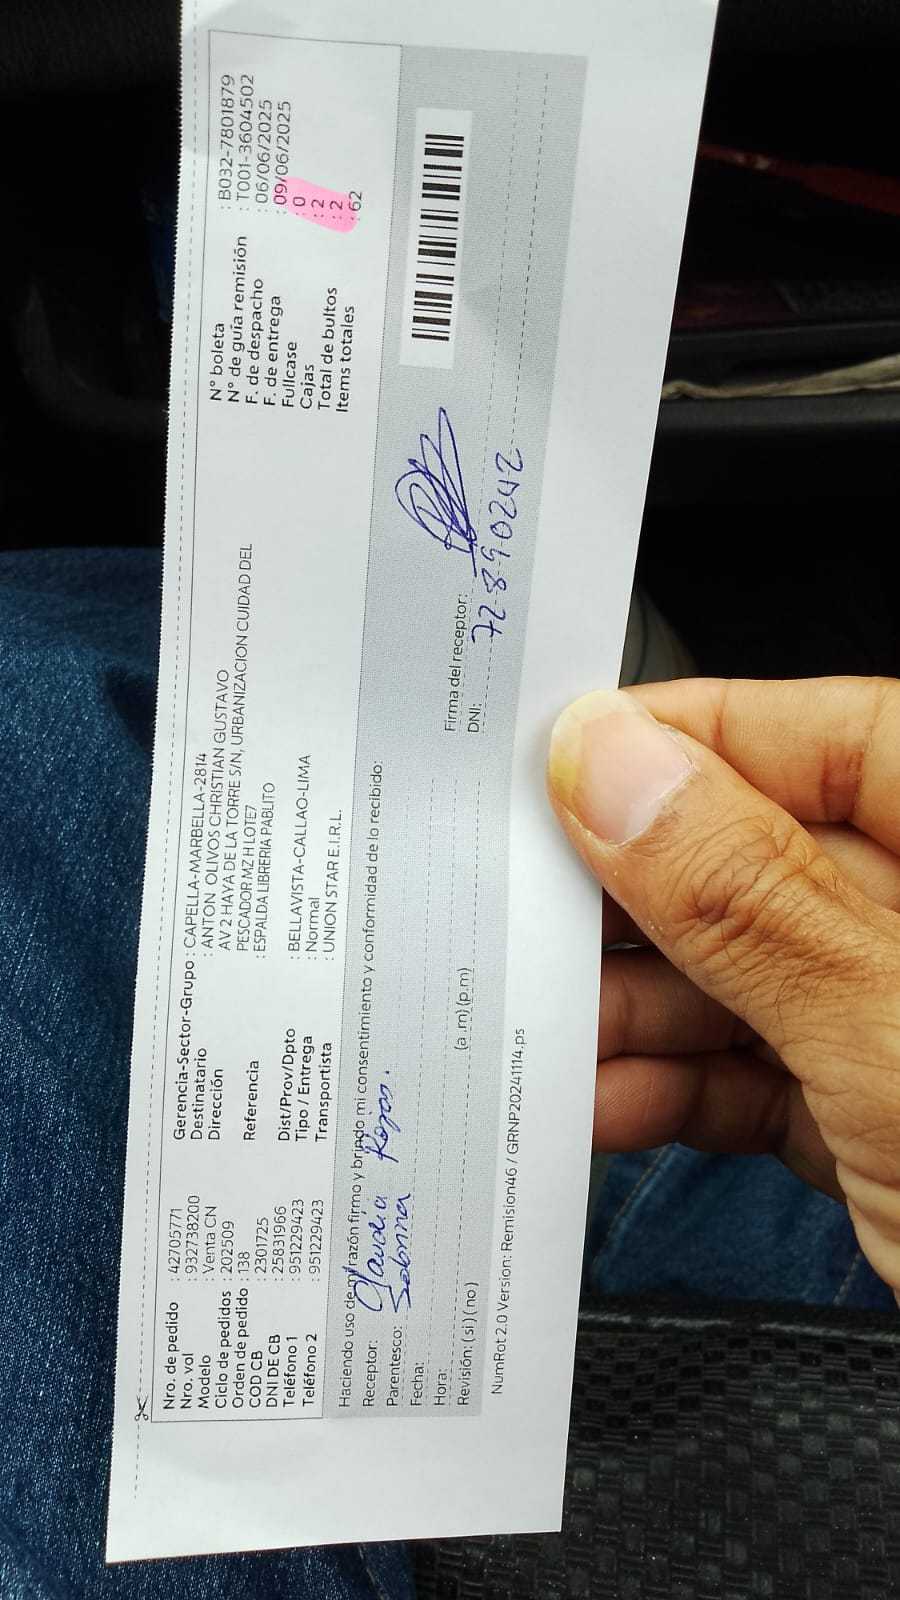 Nro. de pedido : 42705771
Nro. vol : 932738200
Modelo : Venta CN
Ciclo de pedidos : 202509
Orden de pedido : 138
COD CB : 2301725
DNI DE CB : 25831966
Teléfono 1 : 951229423
Teléfono 2 : 951229423
Gerencia-Sector-Grupo : CAPELLA-MARBELLA-2814
Destinatario : ANTON OLIVOS CHRISTIAN GUSTAVO
Dirección AV 2 HAYA DE LA TORRE S/N, URBANIZACION CUIDAD DEL
PESCADOR MZ H LOTE7
Referencia : ESPALDA LIBRERIA PABLITO
Dist/Prov/Dpto : BELLAVISTA-CALLAO-LIMA
Tipo / Entrega : Normal
Transportista : UNION STAR E.I.R.L.
N° boleta : B032-7801879
N° de guía remisión : T001-3604502
F. de despacho : 06/06/2025
F. de entrega : 09/06/2025
Fullcase : 0
Cajas : 2
Total de bultos : 2
Items totales : 62
Haciendo uso de mi razón firmo y brindo mi consentimiento y conformidad de lo recibido:
Receptor: Claudia Rojas.
Parentesco: Sobrina
Fecha:
Hora: (a .m) (p.m)
Revisión: ( si ) ( no )
Firma del receptor:
DNI: 72890242
NumRot 2.0 Version: Remision46 / GRNP20241114.ps